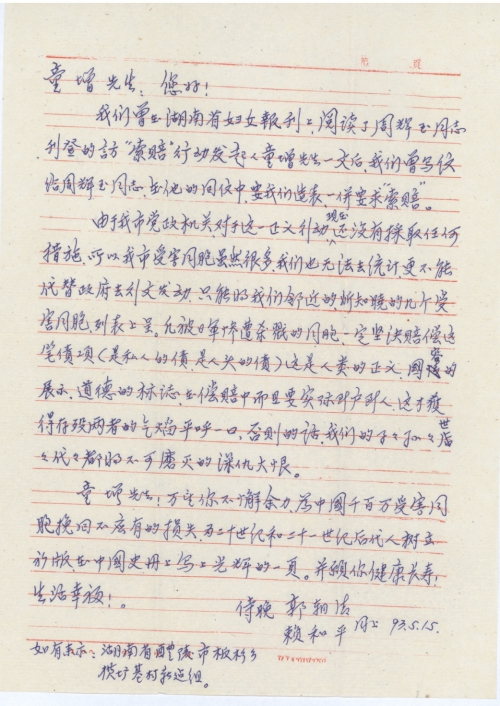 第 頁
童增先生：您好！
我们曾在湖南省妇女報刊上,阅读了周辉玉同志
刊登的訪“索赔”行动发起人童增先生一文后,我们曾写信
给周辉玉同志,在他的回信中,要我们造表,一併要求“索赔”。
由于我市党政机关,对于这一正义行动,现在还没有採取任何
措施,所以我市受害同胞虽然很多,我们也无法去统计更不能
代替政府去行文发动,只能将我们邻近的,所知晓的几个受
害同胞,列表上呈。凡被日军惨遭杀戮的同胞,一定坚决赔偿这
笔债项(是私人的债,是人头的债)这是人类的正义,國家的
展示,道德的标誌,在偿赔中而且要实际到户到人,这才獲
得存殁两者的气焰平呼一口,否则的话,我们的子々孙々世
々代々都将不可磨灭的深仇大恨。
童增先生：万望你不懈余力,为中國千百万受害同
胞挽回不应有的损失,为二十世纪和二十一世纪后代人树立
於版在中國史册上写上光辉的一頁。并願你健康长寿!
生活幸福!。
侍晚 郭朝
赖和平 同上 93.5.15.
如有表示：湖南省醴陵市板杉乡
巷村新造组。